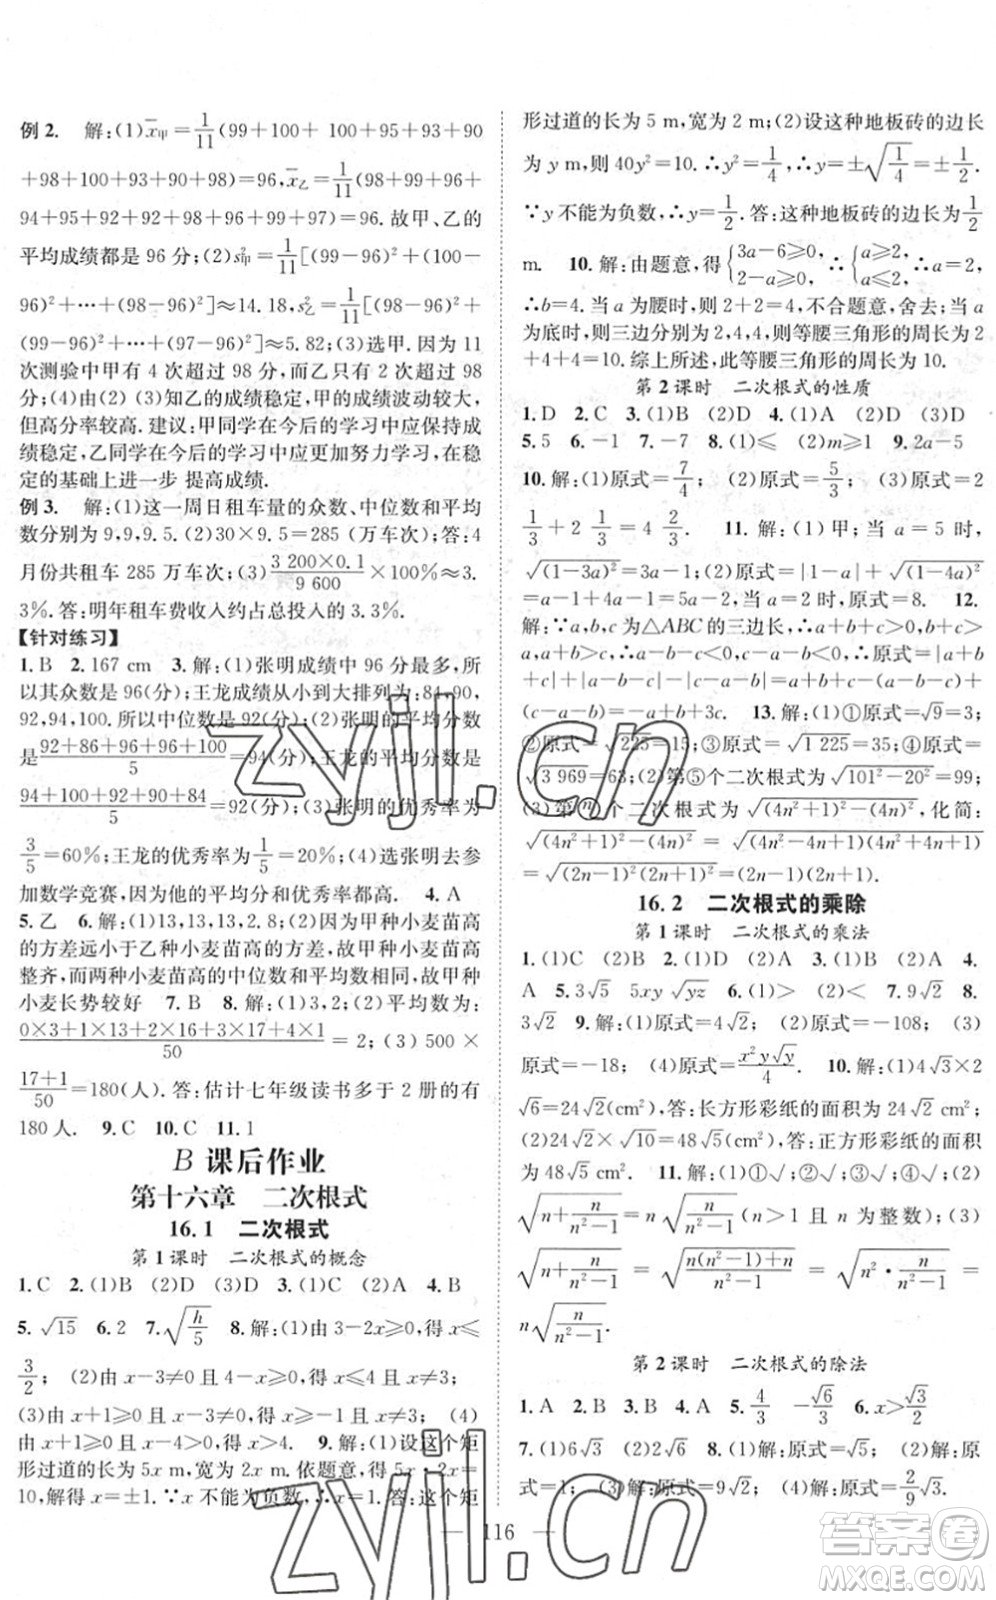 例 2. 解:(1)x̄甲=1/11(99+100+ 100+95+93+90
+98+100+93+90+98)=96,x̄乙=1/11(98+99+96+
94+95+92+92+98+96+99+97)=96.故甲、乙的
平均成绩都是 96 分;(2)s²甲=1/11[(99-96)²+(100-
96)²+…+(98-96)²]≈14.18,s²乙=1/11[(98-96)²+
(99-96)²+…+(97-96)²]≈5.82;(3)选甲.因为 11
次测验中甲有 4 次超过 98 分,而乙只有 2 次超过 98
分;(4)由(2)知乙的成绩稳定,甲的成绩波动较大,
但高分率较高.建议:甲同学在今后的学习中应保持成
绩稳定,乙同学在今后的学习中应更努力学习,在稳
定的基础上进一步 提高成绩.
例 3. 解:(1)这一周日租车量的众数、中位数和平均
数分别为 9,9,9.5.(2)30×9.5=285 (万车次);答:4
月份共租车 285 万车次;(3)(3 200×0.1)/(9 600)×100%≈3.
3%.答:明年租车费收入约占总投入的 3.3%.
【针对练习】
1.B 2.167 cm 3.解:(1)张明成绩中 96 分最多,所
以其众数是 96(分);王龙成绩从小到大排列为:84,90,
92,94,100.所以中位数是 92(分);(2)张明的平均分数
是(92+86+96+96+100)/5=94(分);王龙的平均分数是
(94+100+92+90+84)/5=92(分);(3)张明的优秀率为
3/5=60%;王龙的优秀率为1/5=20%;(4)选张明去参
加数学竞赛,因为他的平均分和优秀率都高. 4.A
5.乙 6.解:(1)13,13,13,2.8;(2)因为甲种小麦苗高
的方差远小于乙种小麦苗高的方差,故甲种小麦苗高
整齐,而两种小麦苗高的中位数和平均数相同,故甲种
小麦长势较好 7.B 8.解:(1)3,2;(2)平均数为:
(0×3+1×13+2×16+17×3+4×1)/50=2;(3)500×
(17+1)/50=180(人).答:估计七年级读书多于 2 册的有
180 人. 9.C 10.C 11.1
B 课后作业
第十六章 二次根式
16.1 二次根式
第 1 课时 二次根式的概念
1.C 2.(1)B (2)D (3)D 3.(1)C (2)A 4.B
5.√15 6.2 7.√(h/5) 8.解:(1)由 3-2x≥0,得 x≤
3/2;(2)由 x-3≠0 且 x-4≥0,得 x≥4 且 x≠3;
(3)由 x+1≥0 且 x-3≠0,得 x≥-1 且 x≠3;(4)
由 x+1≥0 且 x≠0,得 x≥-1 且 x≠0. 9.解:(1)设这个矩
形过道的长为 5x m,宽为 2x m.依题意,得 5x·2x=
10,解得 x=±1.∵x 不能为负数,∴x=1.答:这个矩
形过道的长为 5 m,宽为 2 m;(2)设这种地板砖的边长
为 y m,则 40y²=10.∴y²=1/4,∴y=±√(1/4)=±1/2.
∵y 不能为负数,∴y=1/2.答:这种地板砖的边长为1/2
m. 10.解:由题意,得{3a-6≥0,2-a≥0,∴{a≥2,a≤2,∴a=2,
∴b=4.当 a 为腰时,则 2+2=4,不合题意,舍去;当 a
为底时,则三边分别为 2,4,4,则等腰三角形的周长为 2
+4+4=10.综上所述,此等腰三角形的周长为 10.
第 2 课时 二次根式的性质
1.D 2.C 3.(1)B (2)D 4.(1)A (2)D (3)D
5.5 6.-1 7.7 8.(1)≤ (2)m≥1 9.2a-5
10.解:(1)原式=7/4;(2)原式=5/3;(3)原式=2
1/3+2 1/3=4 2/3. 11.解:(1)甲;当 a=5 时,
√(1-3a)²=3a-1;(2)原式=|1-a|+√(1-4a)²
=a-1+4a-1=5a-2.当 a=2 时,原式=8. 12.
解:∵a,b,c 为△ABC 的三边长,∴a+b+c>0,b+c
-a>0,a+c-b>0,c-b-a<0.∴原式=|a+b
+c|+|a-b-c|-|b-a-c|+(c-b-a)=(a+b+c)+
(c-a-b)=-a-b+3c. 13.解:(1)①原式=√9=3;
②原式=√225=15;③原式=√1 225=35;④原式=
√3 969=63;(2)第⑤个二次根式为√(101²-20²)=99;
(3)第ⓝ个二次根式为√((4n²+1)²-(4n)²),化简:
√((4n²+1)²-(4n)²)=√((4n²+1-4n)(4n²+4n+1))
=√((2n-1)²(2n+1)²)=(2n-1)(2n+1).
16.2 二次根式的乘除
第 1 课时 二次根式的乘法
1.(1)C (2)B 2.(1)D (2)A 3.(1)B (2)A 4.
A 5.3√5 5xy√yz 6.(1)> (2)< 7.9√2 8.
3√2 9.解:(1)原式=4√2;(2)原式=-108;(3)
原式=-18;(4)原式=x²y√y/4. 10.解:(1)4√3×2
√6=24√2(cm²),答:长方形彩纸的面积为 24√2 cm²;
(2)24√2×√10=48√5(cm²),答:正方形彩纸的面积
为 48√5 cm². 11.解:(1)①√;②√;③√;④√;(2)
√(n+n/(n²-1))=n√(n/(n²-1))(n>1 且 n 为整数);(3)
√(n+n/(n²-1))=√((n(n²-1)+n)/(n²-1))=√(n²·n/(n²-1))=
n√(n/(n²-1)).
第 2 课时 二次根式的除法
1.A 2.C 3.B 4.(1)B (2)A 5.4/3 -√6/3 6.x>√3/2
7.(1)6√3 (2)-3√2 8.(1)解:原式=√6;(2)解:原
式=1;(3)解:原式=9√2;(4)解:原式=2/9√3.
116
zyjl.cn
zyjl.cn
答案圈
MXQE.COM